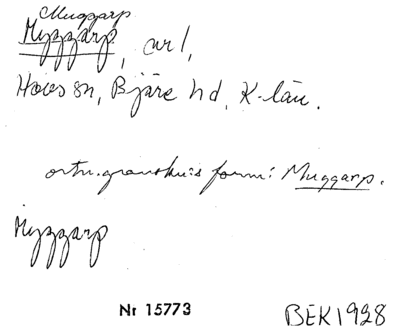 Muggarp
Myggarp, arl,
Hovs sn, Bjäre hd, K-län.
ortn.granskn:s form: Muggarp.
Myggarp
Nr 15773
BEK1928